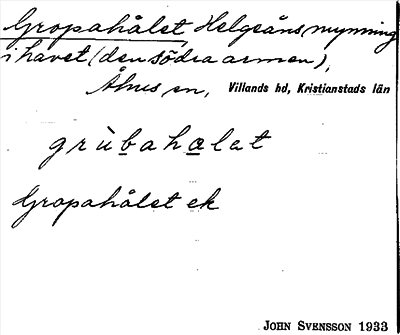 Gropahålet, Helgeåns mynning
i havet (den södra armen),
Åhus sn, Villands hd, Kristianstads län
grùbahalat
Gropahålet ek
JOHN SVENSSON 1933